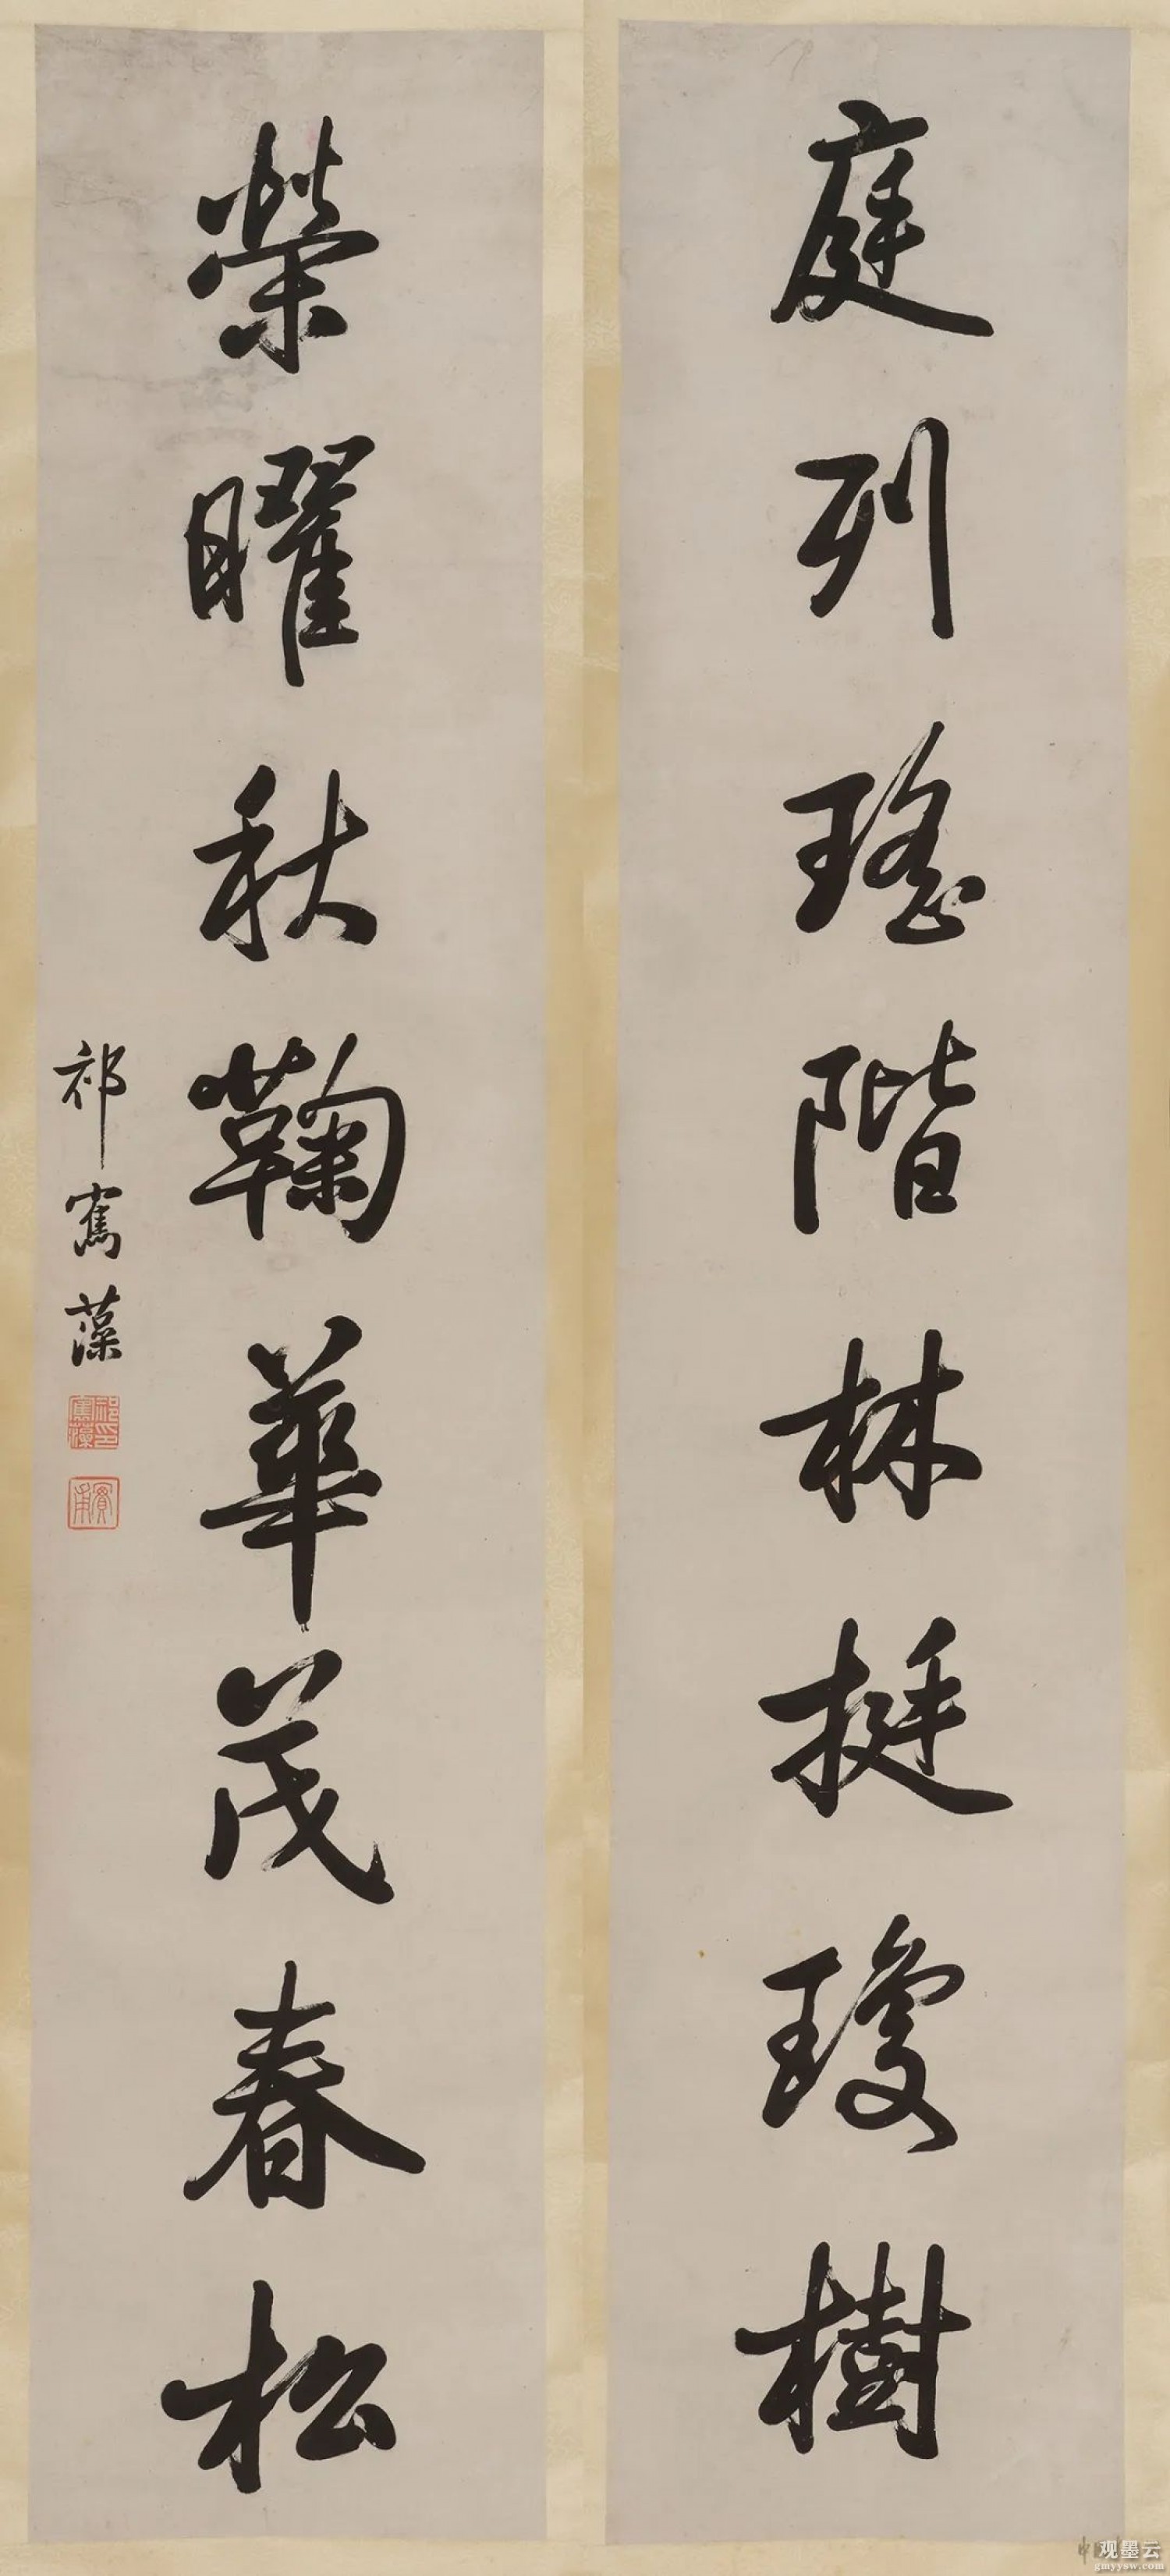 庭列瑤階林挺瓊樹
榮曜秋鞠華茂春松
祁寯藻
祁寯藻印
實甫
观墨云
gmyysw.com